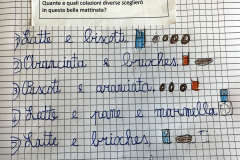 Quante e quali colazioni diverse sceglierò
in questa bella mattinata?
1) Latte e biscotti
2) Aranciata e brioches
3) Biscotti e aranciata
4) Latte e pane e marmellata
5) Latte e brioches